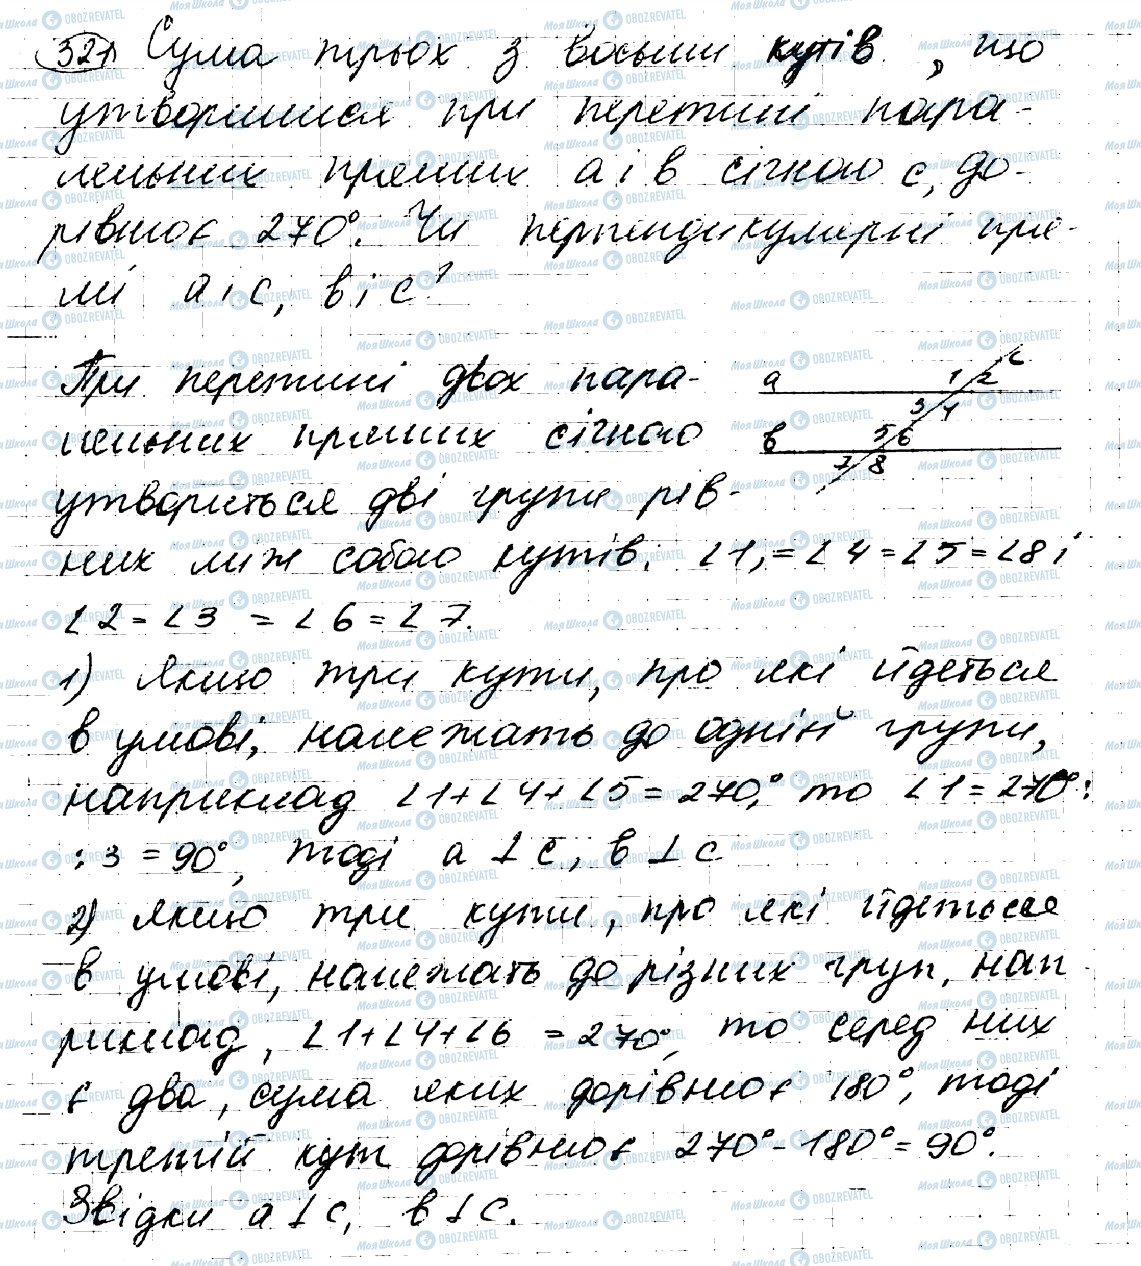 321 Сума трьох з восьми кутів, що
утворилися при перетині пара-
лельних прямих a і в січною c, до-
рівнює 270°. Чи перпендикулярні пря-
мі a і c, в і c?
При перетині двох пара-
лельних прямих січною
утвориться дві групи рів-
них між собою кутів. ∠1, = ∠4 = ∠5 = ∠8 і
∠2 = ∠3 = ∠6 = ∠7.
a 1 2 c
3 4
в 5 6
7 8
1) Якщо три кути, про які йдеться
в умові, належать до одніїй групи,
наприклад ∠1 + ∠4 + ∠5 = 270°, то ∠1 = 270° :
: 3 = 90°, тоді a ⊥ c, в ⊥ c
2) Якщо три кути, про які йдеться
в умові, належать до різних груп, нап
риклад, ∠1 + ∠4 + ∠6 = 270°, то серед них
є два, сума яких дорівнює 180°, тоді
третій кут дорівнює 270° - 180° = 90°.
Звідки a ⊥ c, в ⊥ c.
Моя Школа OBOZREVATEL